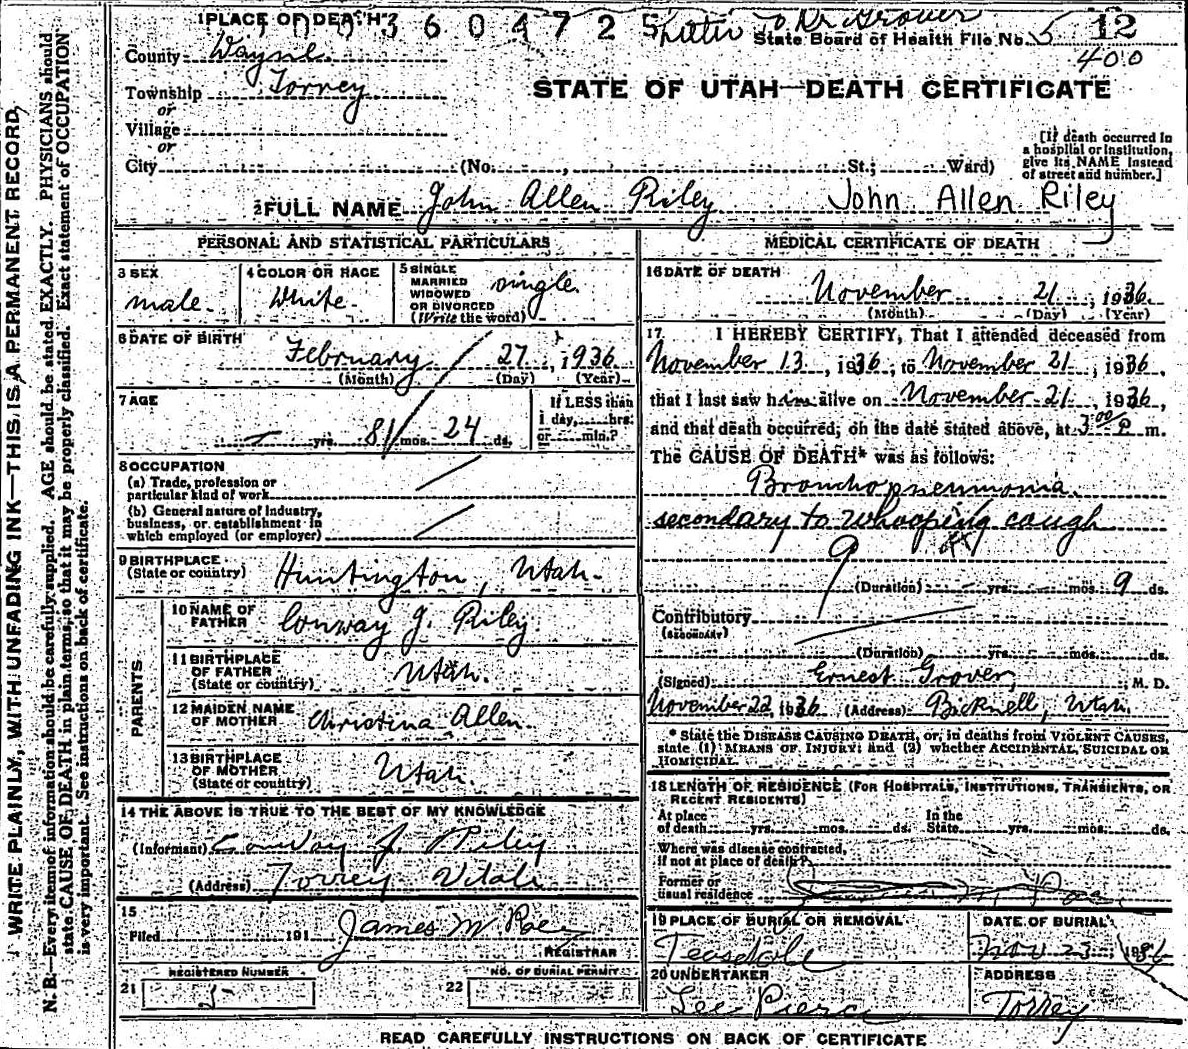 1 PLACE OF DEATH 1003604725 Letter to Dr Grover
State Board of Health File No. 5 12
County Wayne 400
Township Torrey
or
STATE OF UTAH—DEATH CERTIFICATE
Village
or
City (No. , St.; Ward)
[If death occurred in
a hospital or institution,
give its NAME instead
of street and number.]
2 FULL NAME John Allen Riley John Allen Riley
PERSONAL AND STATISTICAL PARTICULARS
3 SEX
male.
4 COLOR OR RACE
White.
5 SINGLE
MARRIED
WIDOWED
OR DIVORCED
(Write the word)
single.
6 DATE OF BIRTH
February 27, 1936
(Month) (Day) (Year)
7 AGE
— yrs. 8 mos. 24 ds.
If LESS than
1 day, hrs.
or min.?
8 OCCUPATION
(a) Trade, profession or
particular kind of work
(b) General nature of industry,
business, or establishment in
which employed (or employer)
9 BIRTHPLACE
(State or country) Huntington, Utah.
PARENTS
10 NAME OF
FATHER Conway J. Riley
11 BIRTHPLACE
OF FATHER
(State or country) Utah.
12 MAIDEN NAME
OF MOTHER Christina Allen.
13 BIRTHPLACE
OF MOTHER
(State or country) Utah.
14 THE ABOVE IS TRUE TO THE BEST OF MY KNOWLEDGE
(Informant) Conway J Riley
(Address) Torrey Utah
15
Filed 191 James M Roe
REGISTRAR
REGISTERED NUMBER
21 5
NO. OF BURIAL PERMIT
22
MEDICAL CERTIFICATE OF DEATH
16 DATE OF DEATH
November 21, 1936
(Month) (Day) (Year)
17 I HEREBY CERTIFY, That I attended deceased from
November 13, 1936, to November 21, 1936,
that I last saw him alive on November 21, 1936,
and that death occurred, on the date stated above, at 3:00 P m.
The CAUSE OF DEATH* was as follows:
Bronchopneumonia.
secondary to whooping cough
9
(Duration) — yrs. — mos. 9 ds.
Contributory
(SECONDARY)
(Duration) yrs. mos. ds.
(Signed) Ernest Grover, M. D.
November 22, 1936 (Address) Bicknell, Utah.
* State the DISEASE CAUSING DEATH, or, in deaths from VIOLENT CAUSES,
state (1) MEANS OF INJURY; and (2) whether ACCIDENTAL, SUICIDAL OR
HOMICIDAL.
18 LENGTH OF RESIDENCE (FOR HOSPITALS, INSTITUTIONS, TRANSIENTS, OR
RECENT RESIDENTS)
At place
of death yrs. mos. ds.
In the
State yrs. mos. ds.
Where was disease contracted,
if not at place of death?
Former or
usual residence
19 PLACE OF BURIAL OR REMOVAL
Teasdale
DATE OF BURIAL
Nov 23, 1936
20 UNDERTAKER
Lee Pierce
ADDRESS
Torrey
READ CAREFULLY INSTRUCTIONS ON BACK OF CERTIFICATE
WRITE PLAINLY, WITH UNFADING INK—THIS IS A PERMANENT RECORD
N. B.—Every item of information should be carefully supplied. AGE should be stated EXACTLY. PHYSICIANS should
state CAUSE OF DEATH in plain terms, so that it may be properly classified. Exact statement of OCCUPATION
is very important. See instructions on back of certificate.